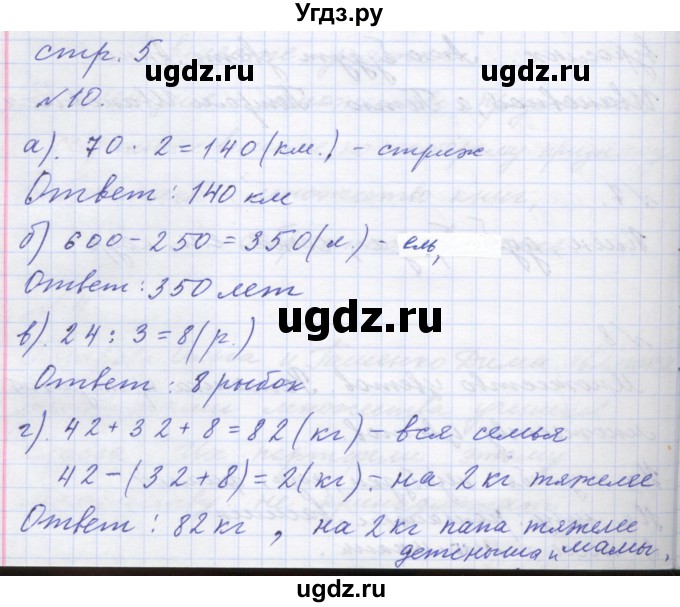 Угдз.ру
стр. 5
ugdz.ru
ugdz.ru
№10.
а). 70 · 2 = 140 (км.) - стриж
Ответ: 140 км
б) 600 - 250 = 350 (л.) - ель,
Ответ: 350 лет
ugdz.ru
в). 24 : 3 = 8 (р.)
Ответ: 8 рыбок
г). 42 + 32 + 8 = 82 (кг) - вся семья
42 - (32 + 8) = 2 (кг) - на 2 кг тяжелее
Ответ: 82 кг, на 2 кг папа тяжелее
детёныша и мамы.
ugdz.ru
ugdz.ru